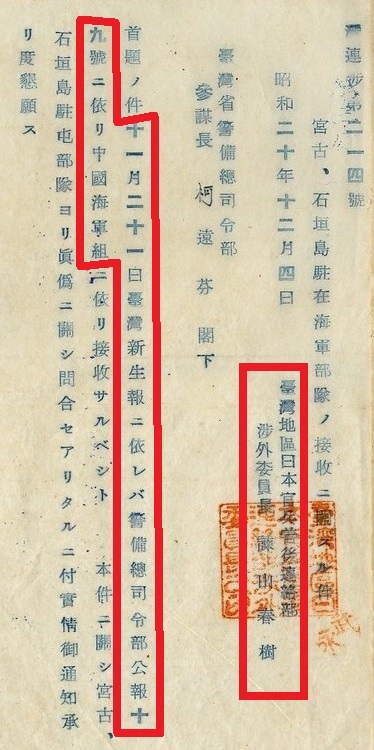 臺連涉第二一四號
宮古、石垣島駐在海軍部隊ノ接收ニ關スル件
昭和二十年十二月四日
臺灣地區日本官兵善後連絡部
涉外委員長 諫山春樹
臺灣省警備總司令部
參謀長 柯遠芬 閣下
首題ノ件十一月二十一日臺灣新生報ニ依レバ警備總司令部公報十
九號ニ依リ中國海軍組ニ依リ接收サルベシト 本件ニ關シ宮古、
石垣島駐屯部隊ヨリ眞僞ニ關シ問合セアリタルニ付實情御通知承
リ度懇願ス